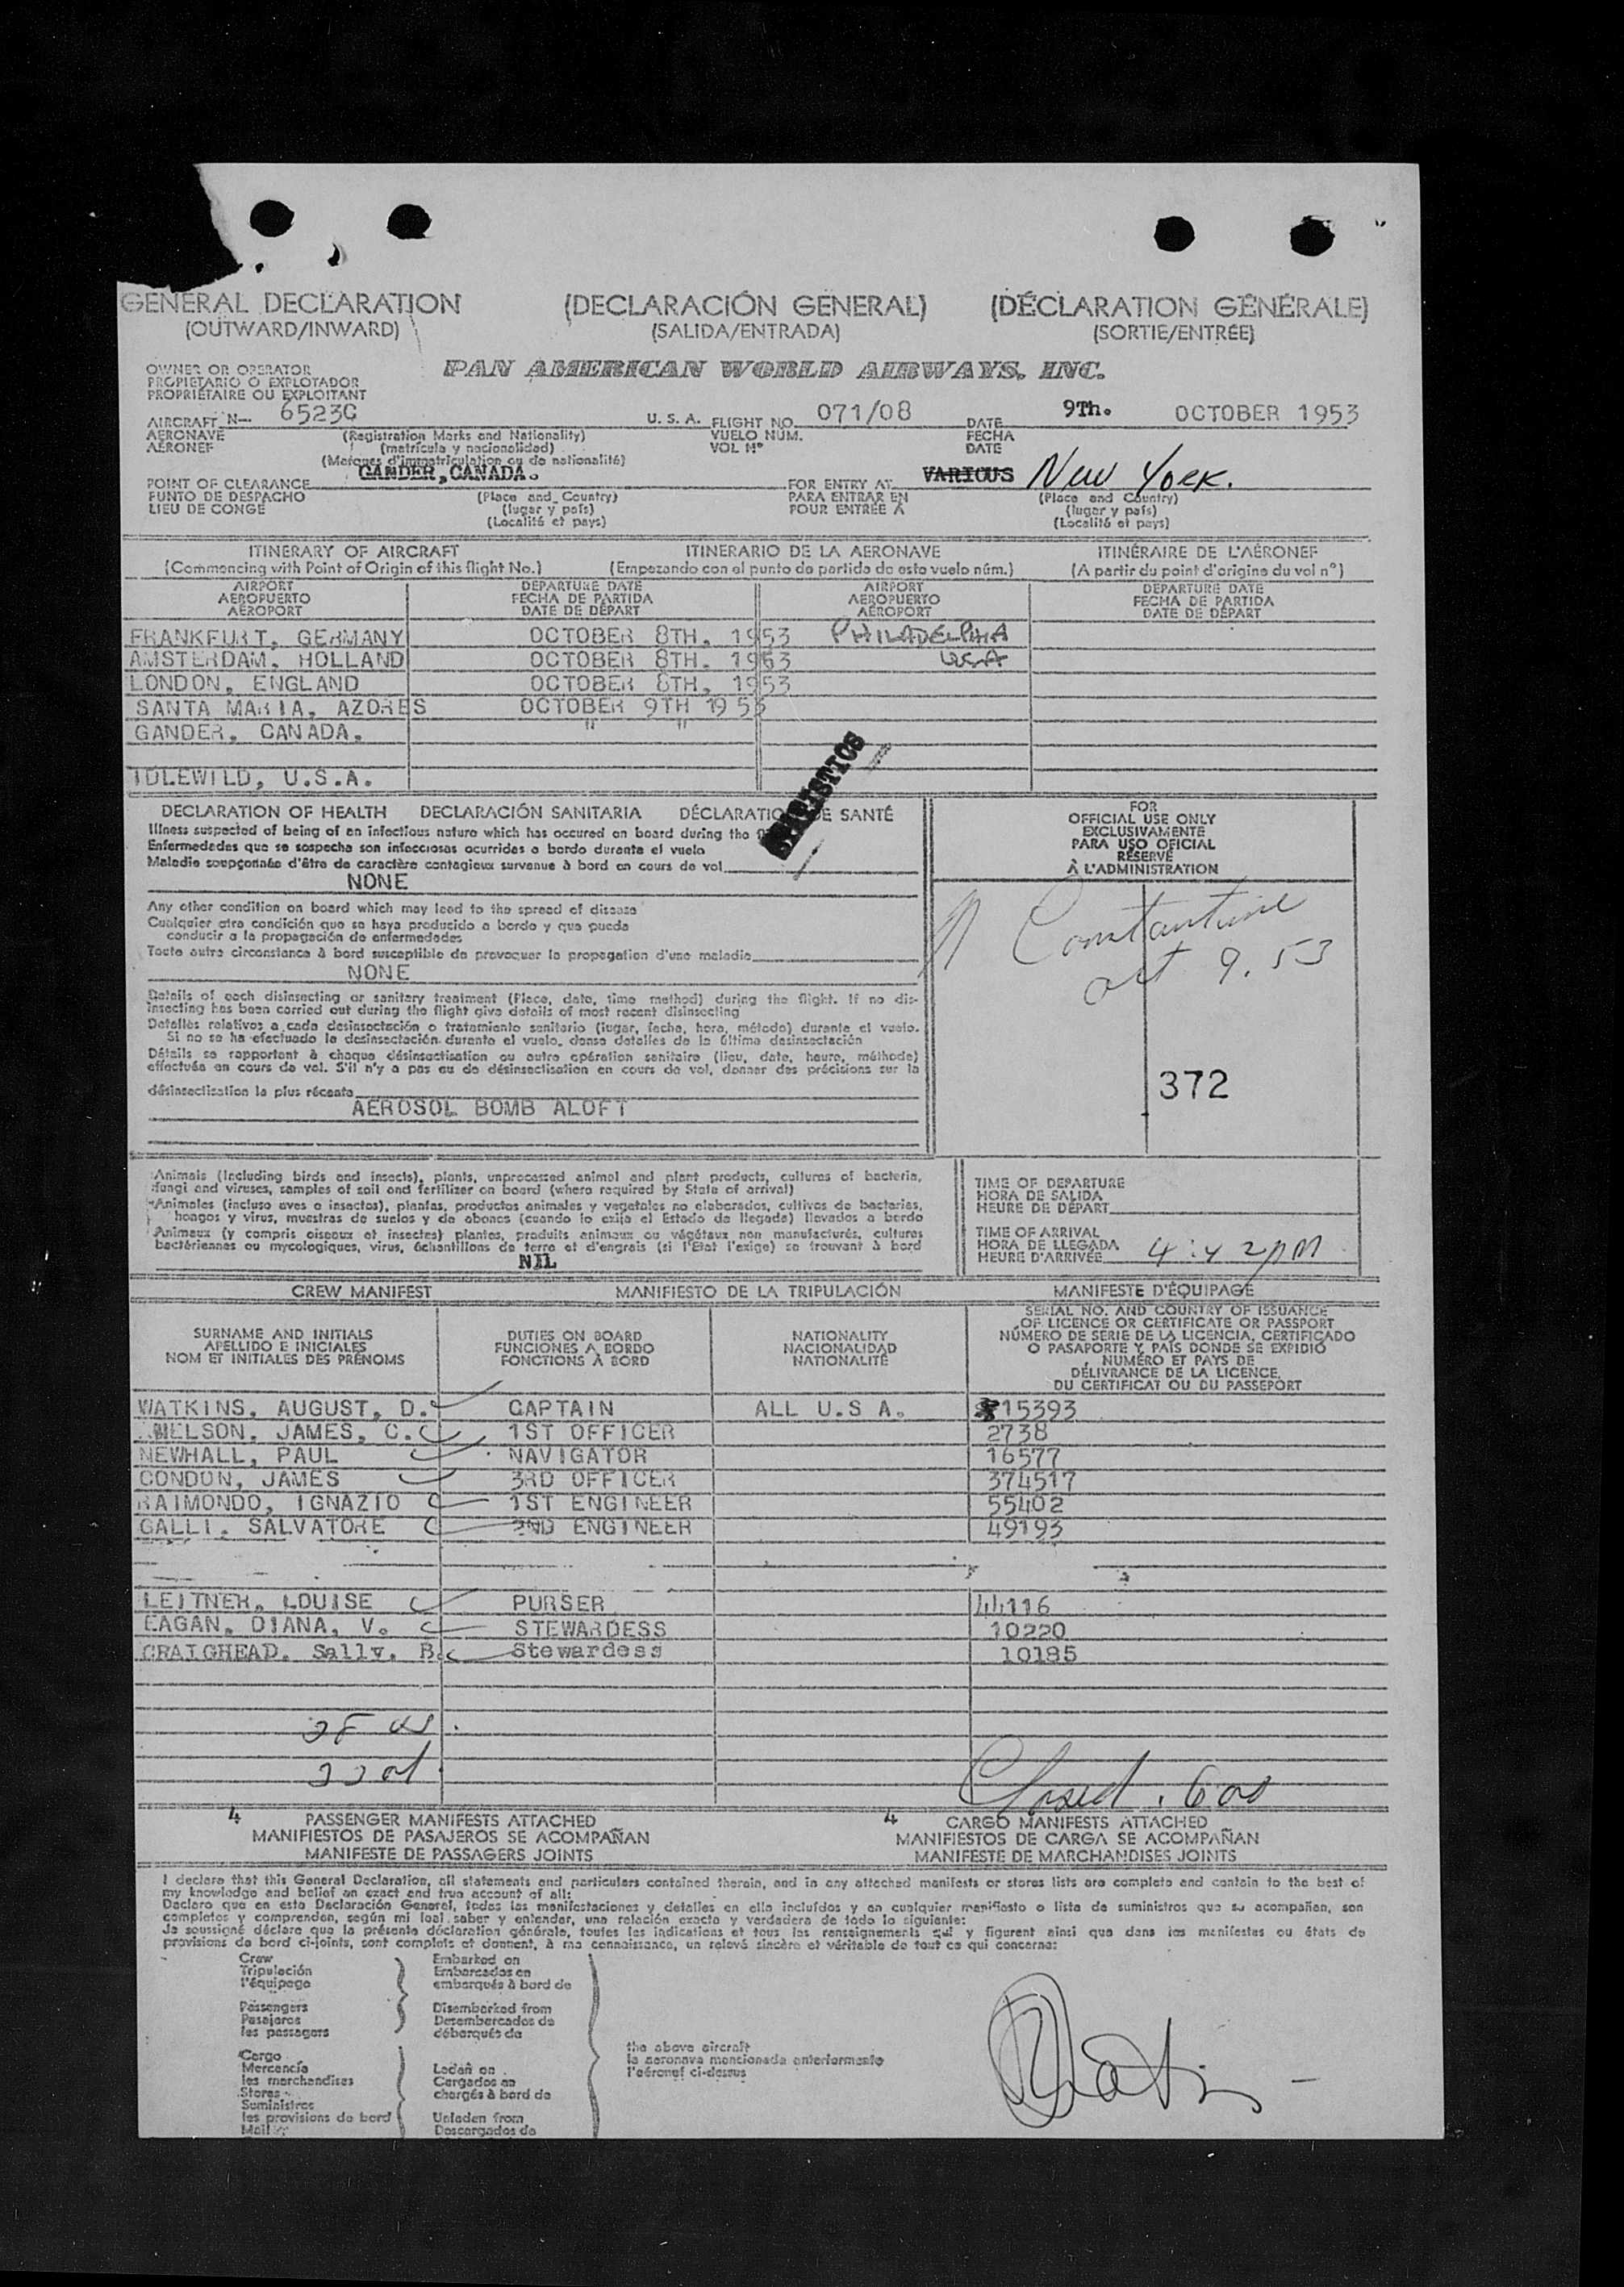 GENERAL DECLARATION (DECLARACIÓN GENERAL) (DÉCLARATION GÉNÉRALE)
(OUTWARD/INWARD) (SALIDA/ENTRADA) (SORTIE/ENTRÉE)
OWNER OR OPERATOR
PROPIETARIO O EXPLOTADOR
PROPRIÉTAIRE OU EXPLOITANT
PAN AMERICAN WORLD AIRWAYS, INC.
AIRCRAFT N- 6523C U. S. A. FLIGHT NO. 071/08 DATE 9Th. OCTOBER 1953
AERONAVE (Registration Marks and Nationality) VUELO NÚM. FECHA
AÉRONEF (matrícula y nacionalidad) VOL Nº DATE
(Marques d'immatriculation ou de nationalité)
POINT OF CLEARANCE GANDER, CANADA. FOR ENTRY AT VARIOUS New York.
PUNTO DE DESPACHO (Place and Country) PARA ENTRAR EN (Place and Country)
LIEU DE CONGÉ (lugar y país) POUR ENTRÉE À (lugar y país)
(Localité et pays) (Localité et pays)
ITINERARY OF AIRCRAFT ITINERARIO DE LA AERONAVE ITINÉRAIRE DE L'AÉRONEF
(Commencing with Point of Origin of this flight No.) (Empezando con el punto de partida de este vuelo núm.) (A partir du point d'origine du vol nº)
AIRPORT DEPARTURE DATE AIRPORT DEPARTURE DATE
AEROPUERTO FECHA DE PARTIDA AEROPUERTO FECHA DE PARTIDA
AÉROPORT DATE DE DÉPART AÉROPORT DATE DE DÉPART
FRANKFURT, GERMANY OCTOBER 8TH, 1953 PHILADELPHIA
AMSTERDAM, HOLLAND OCTOBER 8TH. 1953 USA
LONDON, ENGLAND OCTOBER 8TH, 1953
SANTA MARIA, AZORES OCTOBER 9TH 1953
GANDER, CANADA. " "
IDLEWILD, U.S.A.
STATISTICS
DECLARATION OF HEALTH DECLARACIÓN SANITARIA DÉCLARATION DE SANTÉ
Illness suspected of being of an infectious nature which has occured on board during the
Enfermedades que se sospecha son infecciosas ocurridas a bordo durante el vuelo
Maladie soupçonnée d'être de caractère contagieux survenue à bord en cours de vol
NONE
Any other condition on board which may lead to the spread of disease
Cualquier otra condición que se haya producido a bordo y que pueda
conducir a la propagación de enfermedades
Toute autre circonstance à bord susceptible de provoquer la propagation d'une maladie
NONE
Details of each disinsecting or sanitary treatment (Place, date, time method) during the flight. If no dis-
insecting has been carried out during the flight give details of most recent disinsecting
Detalles relativos a cada desinsectación o tratamiento sanitario (lugar, fecha, hora, método) durante el vuelo.
Si no se ha efectuado la desinsectación durante el vuelo, dense detalles de la última desinsectación
Détails se rapportant à chaque désinsectisation ou autre opération sanitaire (lieu, date, heure, méthode)
effectuée en cours de vol. S'il n'y a pas eu de désinsectisation en cours de vol, donner des précisions sur la
désinsectisation la plus récente
AEROSOL BOMB ALOFT
FOR
OFFICIAL USE ONLY
EXCLUSIVAMENTE
PARA USO OFICIAL
RÉSERVÉ
À L'ADMINISTRATION
Constantine
oct 9. 53
372
Animals (Including birds and insects), plants, unprocessed animal and plant products, cultures of bacteria,
fungi and viruses, samples of soil and fertilizer on board (where required by State of arrival)
Animales (incluso aves o insectos), plantas, productos animales y vegetales no elaborados, cultivos de bacterias,
hongos y virus, muestras de suelos y de abonos (cuando lo exija el Estado de llegada) llevados a bordo
Animaux (y compris oiseaux et insectes) plantes, produits animaux ou végétaux non manufacturés, cultures
bactériennes ou mycologiques, virus, échantillons de terre et d'engrais (si l'Etat l'exige) se trouvant à bord
NIL
TIME OF DEPARTURE
HORA DE SALIDA
HEURE DE DÉPART
TIME OF ARRIVAL
HORA DE LLEGADA
HEURE D'ARRIVÉE 4:42 PM
CREW MANIFEST MANIFIESTO DE LA TRIPULACIÓN MANIFESTE D'ÉQUIPAGE
SURNAME AND INITIALS
APELLIDO E INICIALES
NOM ET INITIALES DES PRÉNOMS
DUTIES ON BOARD
FUNCIONES A BORDO
FONCTIONS À BORD
NATIONALITY
NACIONALIDAD
NATIONALITÉ
SERIAL NO. AND COUNTRY OF ISSUANCE
OF LICENCE OR CERTIFICATE OR PASSPORT
NÚMERO DE SERIE DE LA LICENCIA, CERTIFICADO
O PASAPORTE Y PAÍS DONDE SE EXPIDIÓ
NUMÉRO ET PAYS DE
DÉLIVRANCE DE LA LICENCE,
DU CERTIFICAT OU DU PASSEPORT
WATKINS, AUGUST, D. CAPTAIN ALL U.S A. 15393
JAMES, C. 1ST OFFICER 2738
NEWHALL, PAUL NAVIGATOR 16577
CONDON, JAMES 3RD OFFICER 374517
RAIMONDO, IGNAZIO 1ST ENGINEER 55402
GALLI, SALVATORE 2ND ENGINEER 49193
LEITNER, LOUISE PURSER 44116
EAGAN, DIANA, V. STEWARDESS 10220
CRAIGHEAD, Sally. B. Stewardess 10185
Closed . 600
4 PASSENGER MANIFESTS ATTACHED 4 CARGO MANIFESTS ATTACHED
MANIFIESTOS DE PASAJEROS SE ACOMPAÑAN MANIFIESTOS DE CARGA SE ACOMPAÑAN
MANIFESTE DE PASSAGERS JOINTS MANIFESTE DE MARCHANDISES JOINTS
I declare that this General Declaration, all statements and particulars contained therein, and in any attached manifests or stores lists are complete and contain to the best of
my knowledge and belief an exact and true account of all:
Declaro que en esta Declaración General, todas las manifestaciones y detalles en ella incluídos y en cualquier manifiesto o lista de suministros que se acompañan, son
completos y comprenden, según mi leal saber y entender, una relación exacta y verdadera de todo lo siguiente:
Je soussigné déclare que la présente déclaration générale, toutes les indications et tous les renseignements qui y figurent ainsi que dans les manifestes ou états de
provisions de bord ci-joints, sont complets et donnent, à ma connaissance, un relevé sincère et véritable de tout ce qui concerne:
Crew
Tripulación
l'équipage
Passengers
Pasajeros
les passagers
Cargo
Mercancía
les marchandises
Stores
Suministros
les provisions de bord
Mail
Embarked on
Embarcados en
embarqués à bord de
Disembarked from
Desembarcados de
débarqués de
Laden on
Cargados en
chargés à bord de
Unladen from
Descargados de
the above aircraft
la aeronave mencionada anteriormente
l'aéronef ci-dessus